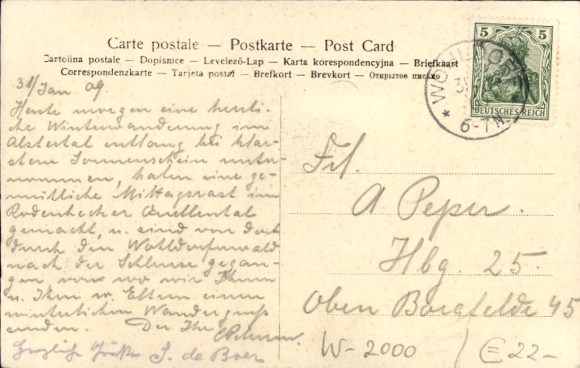 Carte postale — Postkarte — Post Card
Cartolina postale — Dopisnice — Levelező-Lap — Karta korespondencyjna — Briefkaart
Correspondenzkarte — Tarjeta postal — Brefkort — Brevkort — Открытое письмо
5 5
DEUTSCHES REICH
WOHLDORF
6-7 N
31/Jan 09.
Heute morgen eine herrli-
che Winterwanderung im
Alstertal entlang bei klar-
stem Sonnenschein unter-
nommen, haben eine ge-
mütliche Mittagsrast im
Rodenbecker Quellental
gemacht, u. sind von dort
durch den Wohldorferwald
nach der Schleuse gegan-
gen von wo wir Ihnen
u. Ihren w. Eltern einen
winterlichen Wandergruß
senden. Der Ihre
Herzliche Grüße J. de Boer
Frl.
A Peper.
Hbg. 25.
Oben Borgfelde 45
W-2000
€ 22-